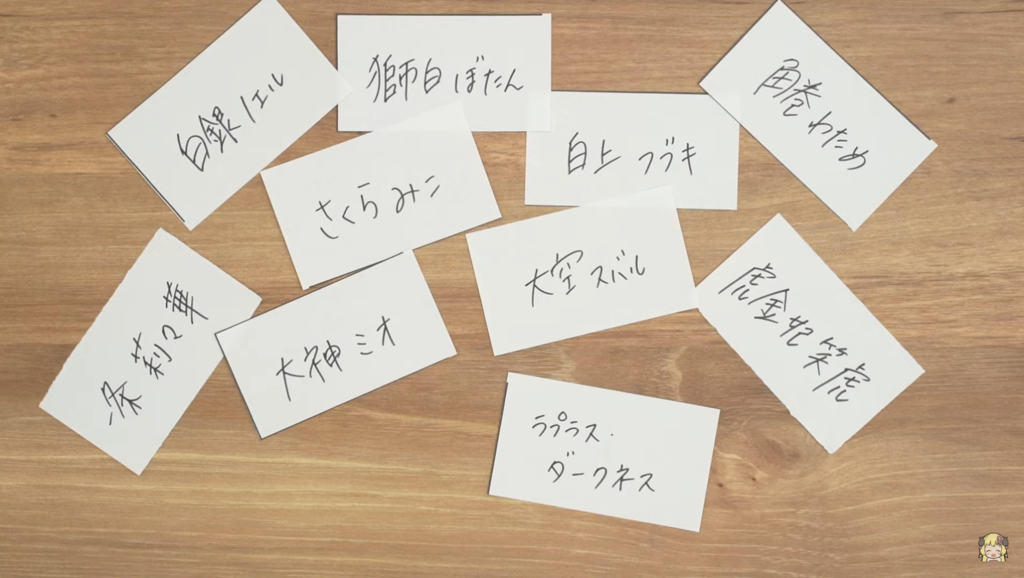 白銀ノエル
獅白ぼたん
角巻わため
白上フブキ
さくらみこ
大空スバル
一条莉々華
大神ミオ
虎金妃笑虎
ラプラス・
ダークネス